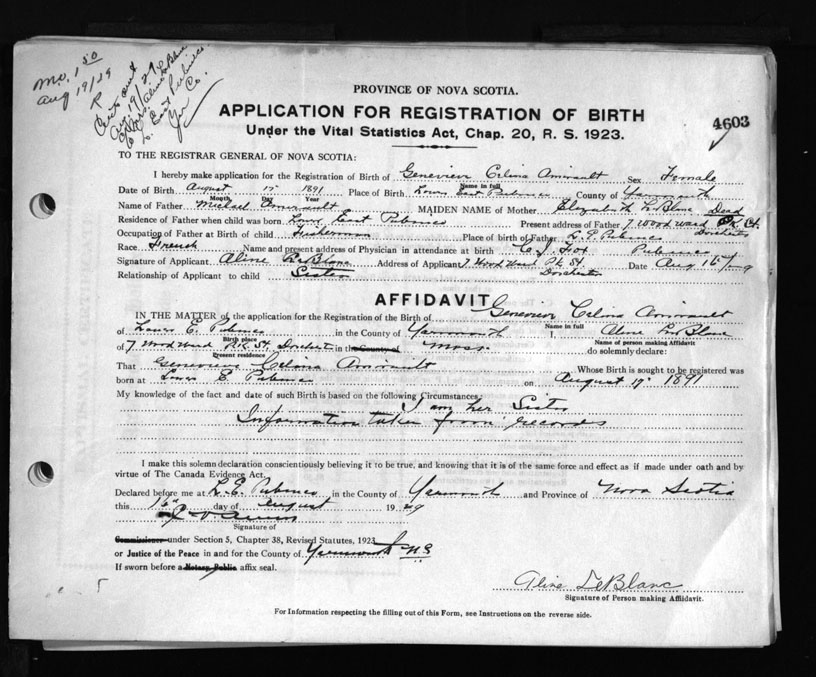 mo. 1 50
Aug 19/29
R
Cert out
Aug 19/29
Mrs. Aline LeBlanc
L. East Pubnico
Yar Co.
PROVINCE OF NOVA SCOTIA.
APPLICATION FOR REGISTRATION OF BIRTH
4603
Under the Vital Statistics Act, Chap. 20, R. S. 1923.
TO THE REGISTRAR GENERAL OF NOVA SCOTIA:
I hereby make application for the Registration of Birth of Genevieve Celina Amirault Sex Female
Name in full
Date of Birth August 17" 1891 Place of Birth Lower East Pubnico County of Yarmouth
Month Day Year
Name of Father Michael Amirault MAIDEN NAME of Mother Elizabeth LeBlanc Dead
Residence of Father when child was born Lower East Pubnico Present address of Father 7 Woodward Pk. St.
Dorchester
Occupation of Father at Birth of child Fisherman Place of birth of Father L. E. Pubnico
Race French Name and present address of Physician in attendance at birth C. J. Fox Pubnico
Signature of Applicant Aline LeBlanc Address of Applicant 7 Woodward Pk St Date Aug 16/29
Dorchester
Relationship of Applicant to child Sister
AFFIDAVIT
IN THE MATTER of the application for the Registration of the Birth of Genevieve Celina Amirault
Name in full
of Lower E. Pubnico in the County of Yarmouth I, Aline LeBlanc
Birth place Name of person making Affidavit
of 7 Woodward Pk. St Dorchester in the County of Mass. do solemnly declare:
Present residence
That Genevieve Celina Amirault Whose Birth is sought to be registered was
born at Lower E Pubnico on August 17" 1891
My knowledge of the fact and date of such Birth is based on the following Circumstances: I am her Sister
Information taken from records
I make this solemn declaration conscientiously believing it to be true, and knowing that it is of the same force and effect as if made under oath and by
virtue of The Canada Evidence Act.
Declared before me at L. E. Pubnico in the County of Yarmouth and Province of Nova Scotia
this 16" day of August 1929
Signature of
Commissioner under Section 5, Chapter 38, Revised Statutes, 1923
or Justice of the Peace in and for the County of Yarmouth N.S
If sworn before a Notary Public affix seal.
Aline LeBlanc
Signature of Person making Affidavit.
For Information respecting the filling out of this Form, see Instructions on the reverse side.